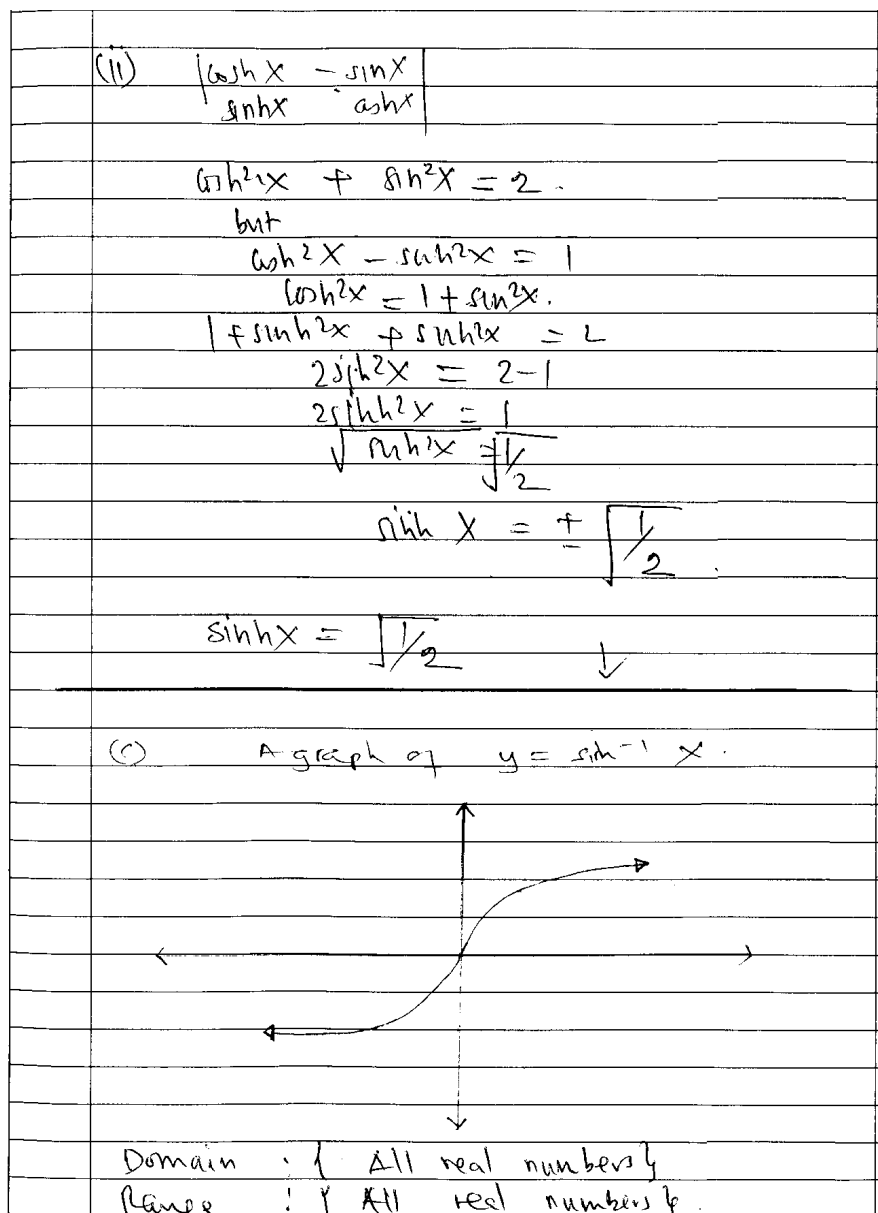 (ii) |cosh x - sinx|
|sinhx coshx|
cosh²x + sin²x = 2.
but
cosh²x - sinh²x = 1
cosh²x = 1 + sin²x.
1 + sinh²x + sinh²x = 2
2sinh²x = 2-1
2sinh²x = 1
√sinh²x = √1/2
sinh x = ± √1/2.
sinhx = √1/2
(c) A graph of y = sinh⁻¹ x.
Domain : { All real numbers}
Range : { All real numbers}.